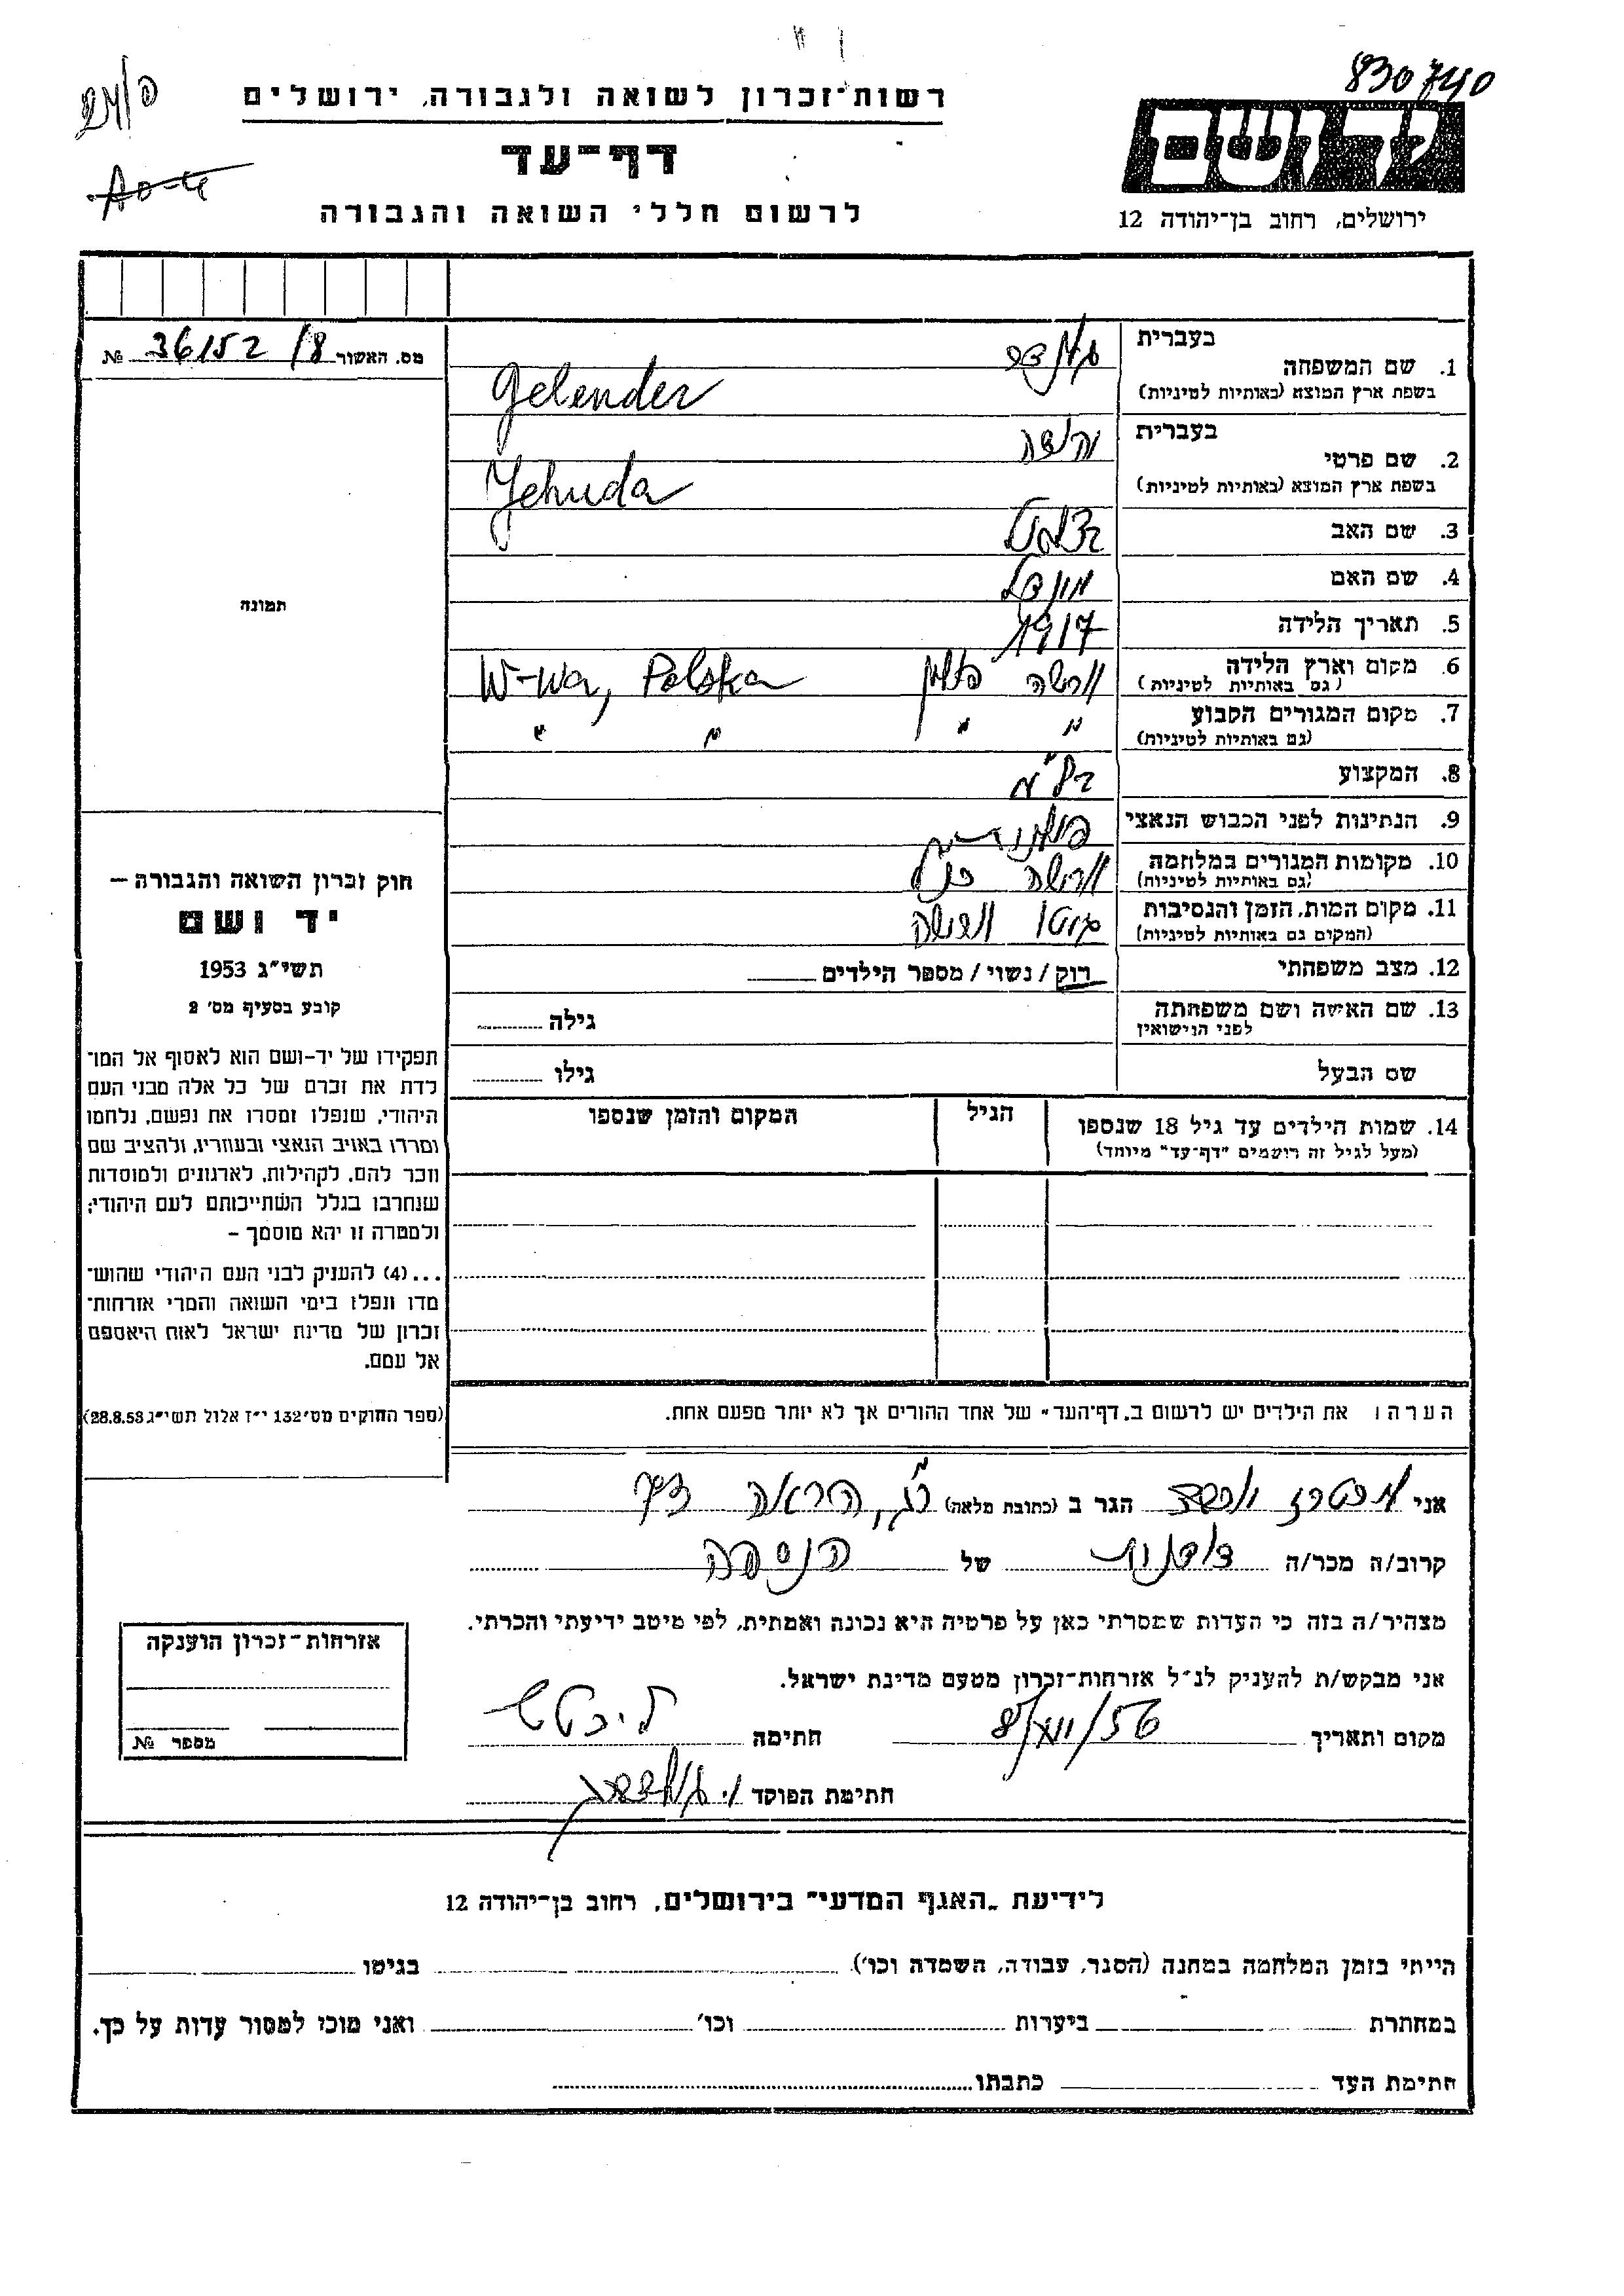 830740
24/פ
A0-4
רשות־זכרון לשואה ולגבורה, ירושלים
דף־עד
לרשום חללי השואה והגבורה
יד ושם
ירושלים, רחוב בן־יהודה 12
מס. האשור 36152/8 №
בעברית
1. שם המשפחה
בשפת ארץ המוצא (באותיות לטיניות) Gelender
בעברית יהודה
2. שם פרטי
בשפת ארץ המוצא (באותיות לטיניות) Yehuda
3. שם האב
4. שם האם
5. תאריך הלידה 1917
6. מקום וארץ הלידה ורשה פולין W-wa, Polska
(גם באותיות לטיניות)
7. מקום המגורים הקבוע " " " "
(גם באותיות לטיניות)
8. המקצוע
9. הנתינות לפני הכבוש הנאצי פולנית
10. מקומות המגורים במלחמה ורשה כנ"ל
(גם באותיות לטיניות)
11. מקום המות, הזמן והנסיבות גיטו ורשה
(המקום גם באותיות לטיניות)
12. מצב משפחתי רוק / נשוי / מספר הילדים
13. שם האישה ושם משפחתה גילה
לפני הנישואין
שם הבעל גילו
14. שמות הילדים עד גיל 18 שנספו הגיל המקום והזמן שנספו
(מעל לגיל זה רושמים "דף־עד" מיוחד)
תמונה
חוק זכרון השואה והגבורה –
יד ושם
תשי"ג 1953
קובע בסעיף מס' 2
תפקידו של יד-ושם הוא לאסוף אל המו־
לדת את זכרם של כל אלה מבני העם
היהודי, שנפלו ומסרו את נפשם, נלחמו
ומרדו באויב הנאצי ובעוזריו, ולהציב שם
וזכר להם, לקהילות, לארגונים ולמוסדות
שנחרבו בגלל השתייכותם לעם היהודי;
ולמטרה זו יהא מוסמך –
...(4) להעניק לבני העם היהודי שהוש־
מדו ונפלו בימי השואה והמרי אזרחות־
זכרון של מדינת ישראל לאות היאספם
אל עמם.
(ספר החוקים מס' 132 י"ז אלול תשי"ג 28.8.53)
הערה: את הילדים יש לרשום ב„דף־העד" של אחד ההורים אך לא יותר מפעם אחת.
אני הגר ב (כתובת מלאה)
קרוב/ה מכר/ה של הנספה
מצהיר/ה בזה כי העדות שמסרתי כאן על פרטיה היא נכונה ואמתית, לפי מיטב ידיעתי והכרתי.
אני מבקש/ת להעניק לנ"ל אזרחות־זכרון מטעם מדינת ישראל.
מקום ותאריך חתימה
חתימת הפוקד
אזרחות־זכרון הוענקה
מספר №
לידיעת „האגף המדעי" בירושלים, רחוב בן־יהודה 12
הייתי בזמן המלחמה במחנה (הסגר, עבודה, השמדה וכו') בגיטו
במחתרת ביערות וכו' ואני מוכן למסור עדות על כך.
חתימת העד כתבתו